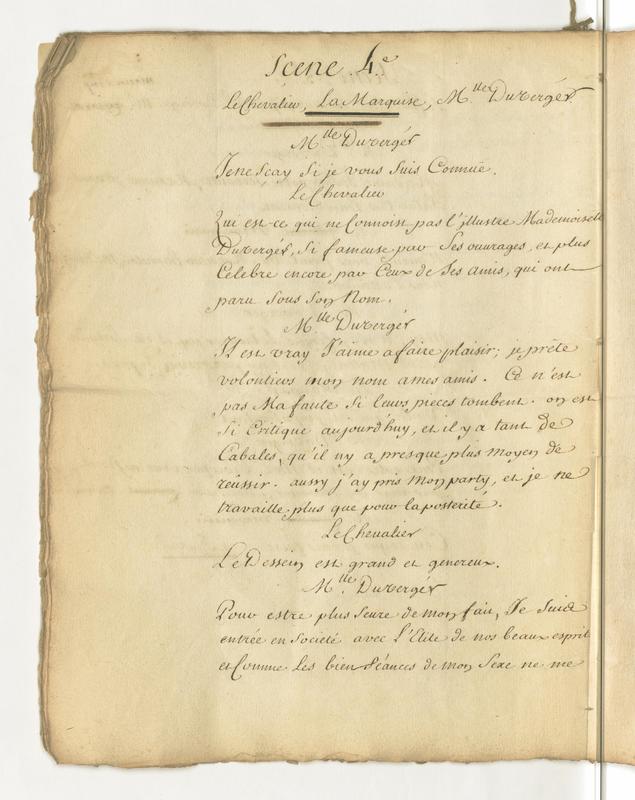 Scene. 4.e
Le Chevalier, La Marquise, M.lle Duvergér.
M.lle Duvergér
Je ne scay si je vous suis Connüe.
Le Chevalier
Qui est-ce qui ne Connoist pas l'jllustre Mademoiselle
Duvergér, si fameuse par ses ouvrages, et plus
Celebre encore par Ceux de ses amis, qui ont
paru sous son Nom.
M.lle Duvergér
Il est vray J'aime a faire plaisir; je prête
volontiers mon nom a mes amis. Ce n'est
pas Ma faute si leurs pieces tombent. on est
si Critique aujourd'huy, et il y a tant de
Cabales, qu'il ny a presque plus moyen de
réussir. aussy j'ay pris mon party, et je ne
travaille plus que pour la posterité.
Le Chevalier
Le Dessein est grand et genereux.
M.lle Duvergér
Pour estre plus seure de mon fait, Je suis
entrée en Societé avec l'Elite de nos beaux esprit
et Comme les bien séances de mon Sexe ne me